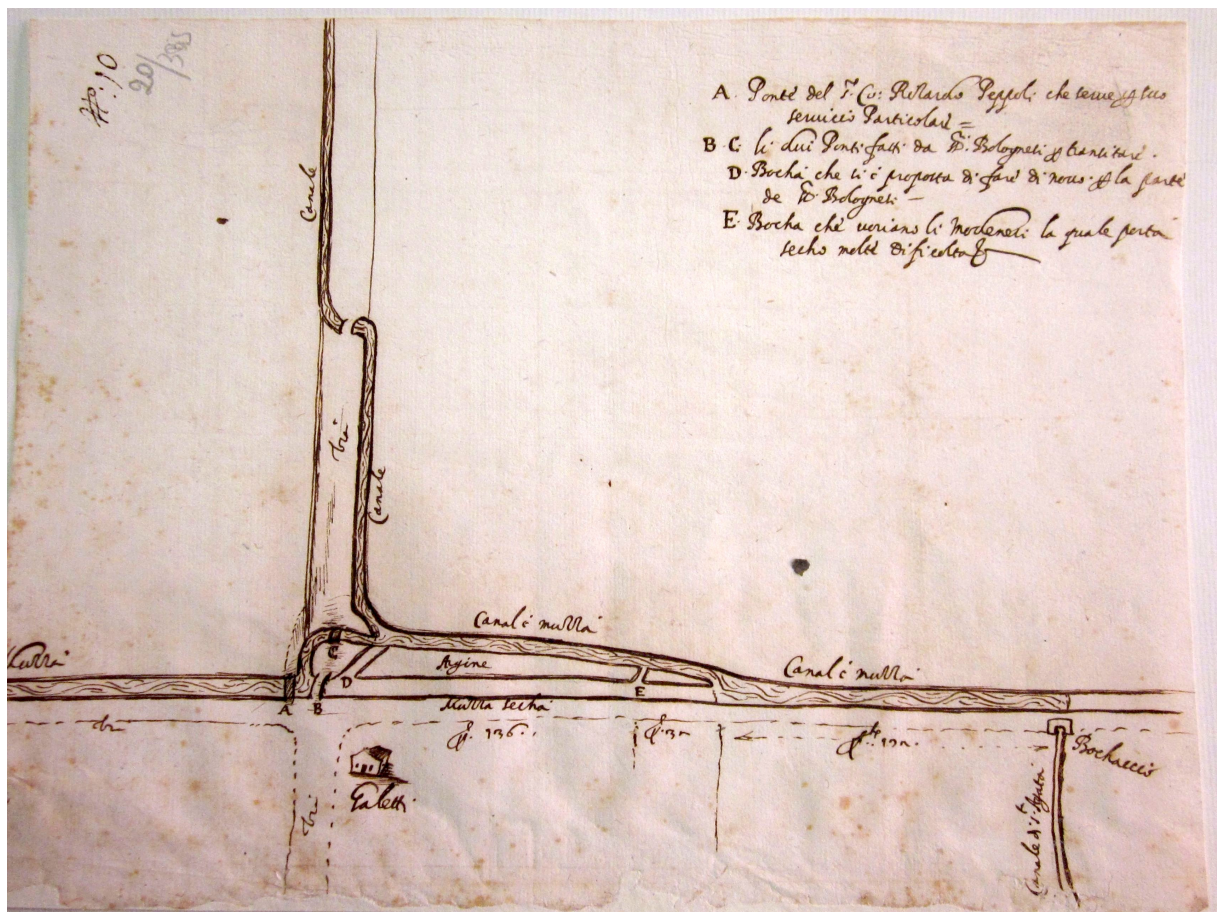 N.º 10
20/385
A. Ponte del S.r Co: Rizardo Peppoli che serue p suo
seruicio Particolare =
B. C. li dui Ponti fatti da SS.ri Bolognesi p transitare.
D. Bocha che si è proposta di fare di nouo p la parte
de SS.ri Bolognesi –
E. Bocha che uoriano li Modenesi la quale porta
secho molte dificolta
Canale
Via
Canale
Canal è muzza
Muzza
Argine
Canal è muzza
A
B
C
D
E
Muzza secha
Via
p. 136.
Bochaccio
Galetti
Via
Canale di S.ta Agata